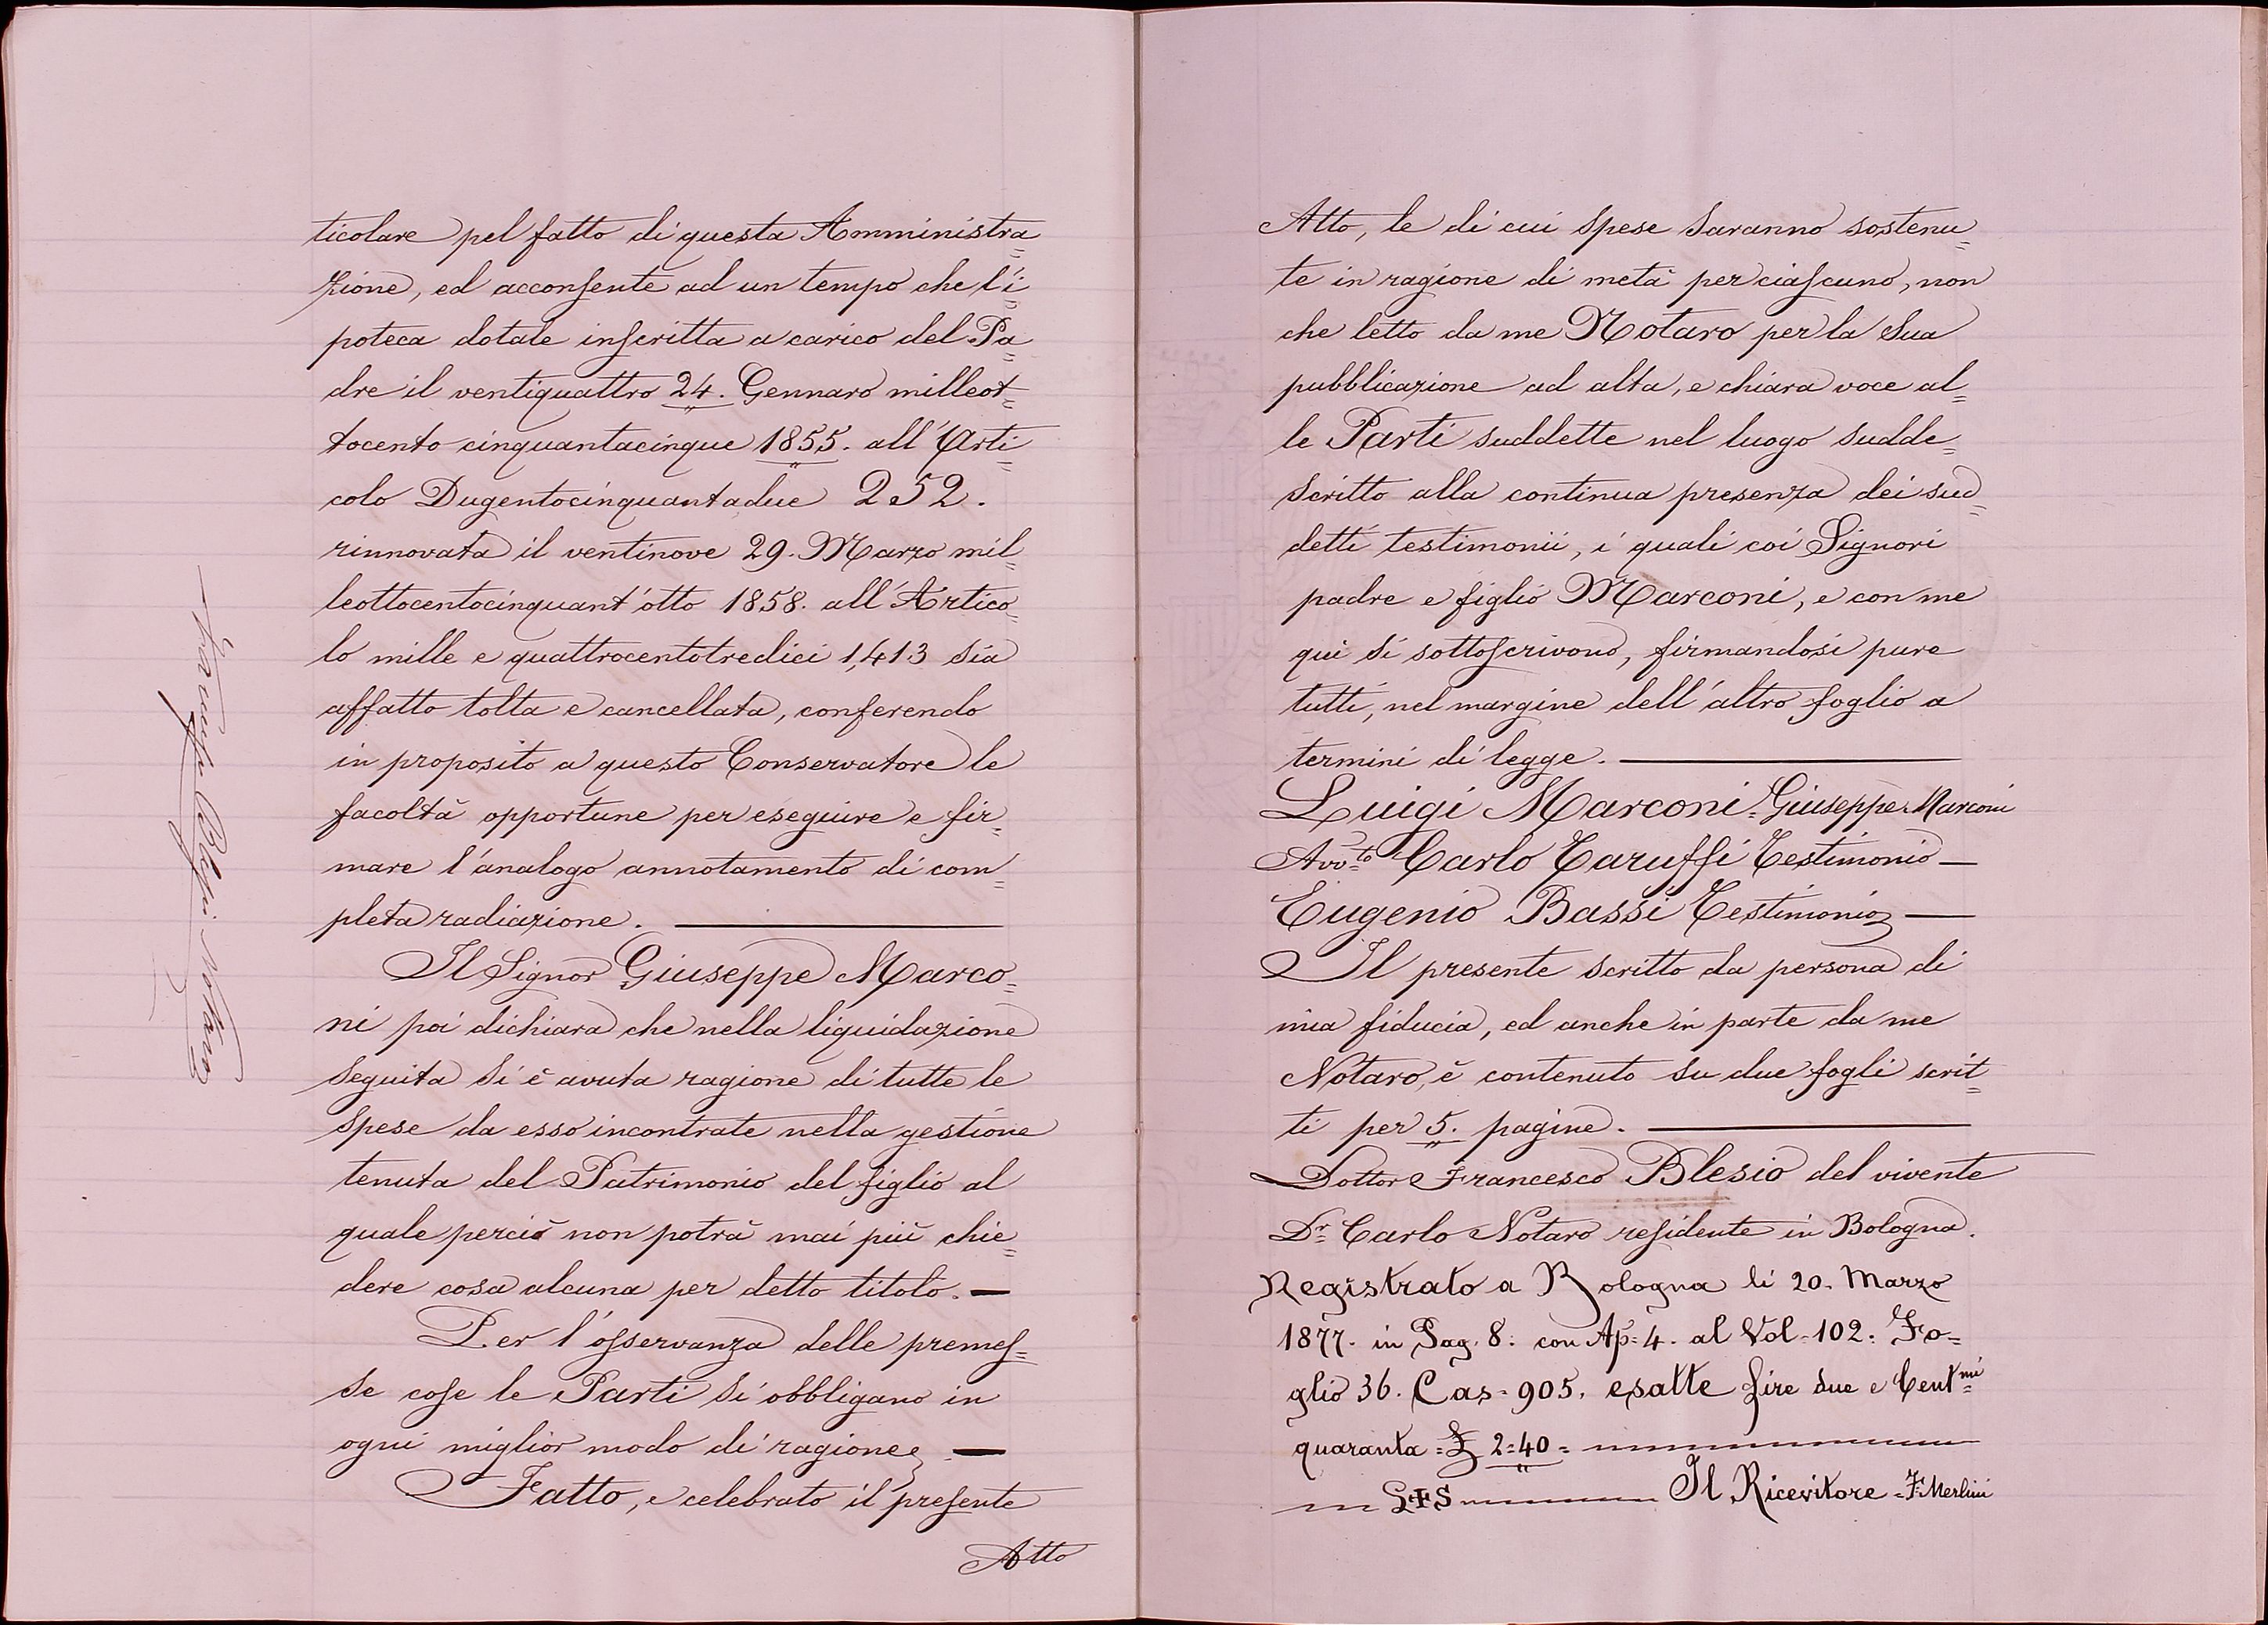 ticolare pel fatto di questa Amministra=
zione, ed acconsente ad un tempo che l'i=
poteca dotale inscritta a carico del Pa=
dre il ventiquattro 24. Gennaro milleot=
tocento cinquantacinque 1855. all'Arti=
colo Dugentocinquantadue 252.
rinnovata il ventinove 29. Marzo mil=
leottocentocinquant'otto 1858. all'Artico=
lo mille e quattrocentotredici 1,413 sia
affatto tolta e cancellata, conferendo
in proposito a questo Conservatore le
facoltà opportune per eseguire e fir=
mare l'analogo annotamento di com=
pleta radiazione.
Il Signor Giuseppe Marco=
ni poi dichiara che nella liquidazione
seguita si è avuta ragione di tutte le
spese da esso incontrate nella gestione
tenuta del Patrimonio del figlio al
quale perciò non potrà mai più chie=
dere cosa alcuna per detto titolo.
Per l'osservanza delle premes=
se cose le Parti si obbligano in
ogni miglior modo di ragione.
Fatto, e celebrato il presente
Atto
Notaro
Atto, le di cui spese saranno sostenu=
te in ragione di metà per ciascuno, non
che letto da me Notaro per la sua
pubblicazione ad alta, e chiara voce al=
le Parti suddette nel luogo sudde=
scritto alla continua presenza dei sud=
detti testimonii, i quali coi Signori
padre e figlio Marconi, e con me
qui si sottoscrivono, firmandosi pure
tutti, nel margine dell'altro foglio a
termini di legge.
Luigi Marconi = Giuseppe Marconi
Avv.to Carlo Taruffi Testimonio
Eugenio Bassi Testimonio
Il presente scritto da persona di
mia fiducia, ed anche in parte da me
Notaro, è contenuto su due fogli scrit=
ti per 5. pagine.
Dottor Francesco Blesio del vivente
Dr. Carlo Notaro residente in Bologna.
Registrato a Bologna li 20. Marzo
1877. in Pag. 8: con Ap: 4. al Vol. 102. Fo=
glio 36. Cas. 905. esatte Lire due e Centmi
quaranta = £ 2=40 =
L+S Il Ricevitore = F. Merlini